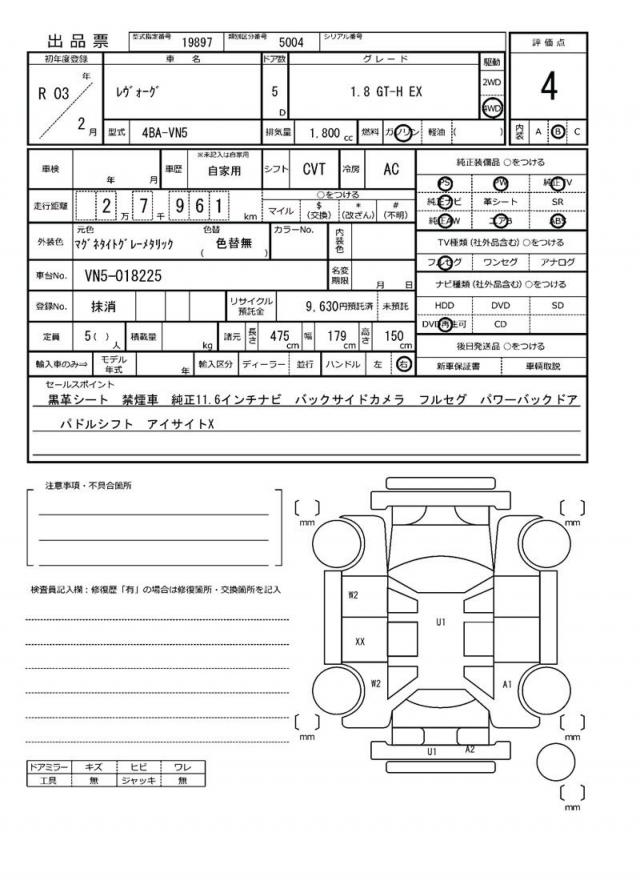 出品票 型式指定番号 19897 類別区分番号 5004 シリアル番号
評価点
4
内装 A B C
初年度登録 車名 ドア数 グレード 駆動
R 03 年 2 月 レヴォーグ 5 D 1.8 GT-H EX 2WD 4WD
型式 4BA-VN5 排気量 1.800 cc 燃料 ガソリン 軽油 ( )
車検 年 月 車歴 ※未記入は自家用 自家用 シフト CVT 冷房 AC
走行距離 2 万 7 千 9 6 1 km ○をつける
マイル $ (交換) * (改ざん) # (不明)
外装色 元色 マグネタイトグレーメタリック 色替 ( 色替無 ) カラーNo. 内装色
車台No. VN5-018225 名変期限 月 日
登録No. 抹消 リサイクル預託金 9,630円預託済 未預託
定員 5 ( ) 人 積載量 kg 諸元 長さ 475 cm 幅 179 cm 高さ 150 cm
輸入車のみ⇒ モデル年式 年 輸入区分 ディーラー 並行 ハンドル 左 右
純正装備品 ○をつける
PS PW 純正TV
純正ナビ 革シート SR
純正AW エアB ABS
TV種類 (社外品含む) ○をつける
フルセグ ワンセグ アナログ
ナビ種類 (社外品含む) ○をつける
HDD DVD SD
DVD再生可 CD
後日発送品 ○をつける
新車保証書 車輌取説
セールスポイント
黒革シート 禁煙車 純正11.6インチナビ バックサイドカメラ フルセグ パワーバックドア
パドルシフト アイサイトX
注意事項・不具合箇所
検査員記入欄：修復歴「有」の場合は修復箇所・交換箇所を記入
ドアミラー キズ ヒビ ワレ
工具 無 ジャッキ 無
[ ] mm
[ ] mm
W2
U1
XX
W2
A1
[ ] mm
[ ] mm
U1 A2
[ ] mm